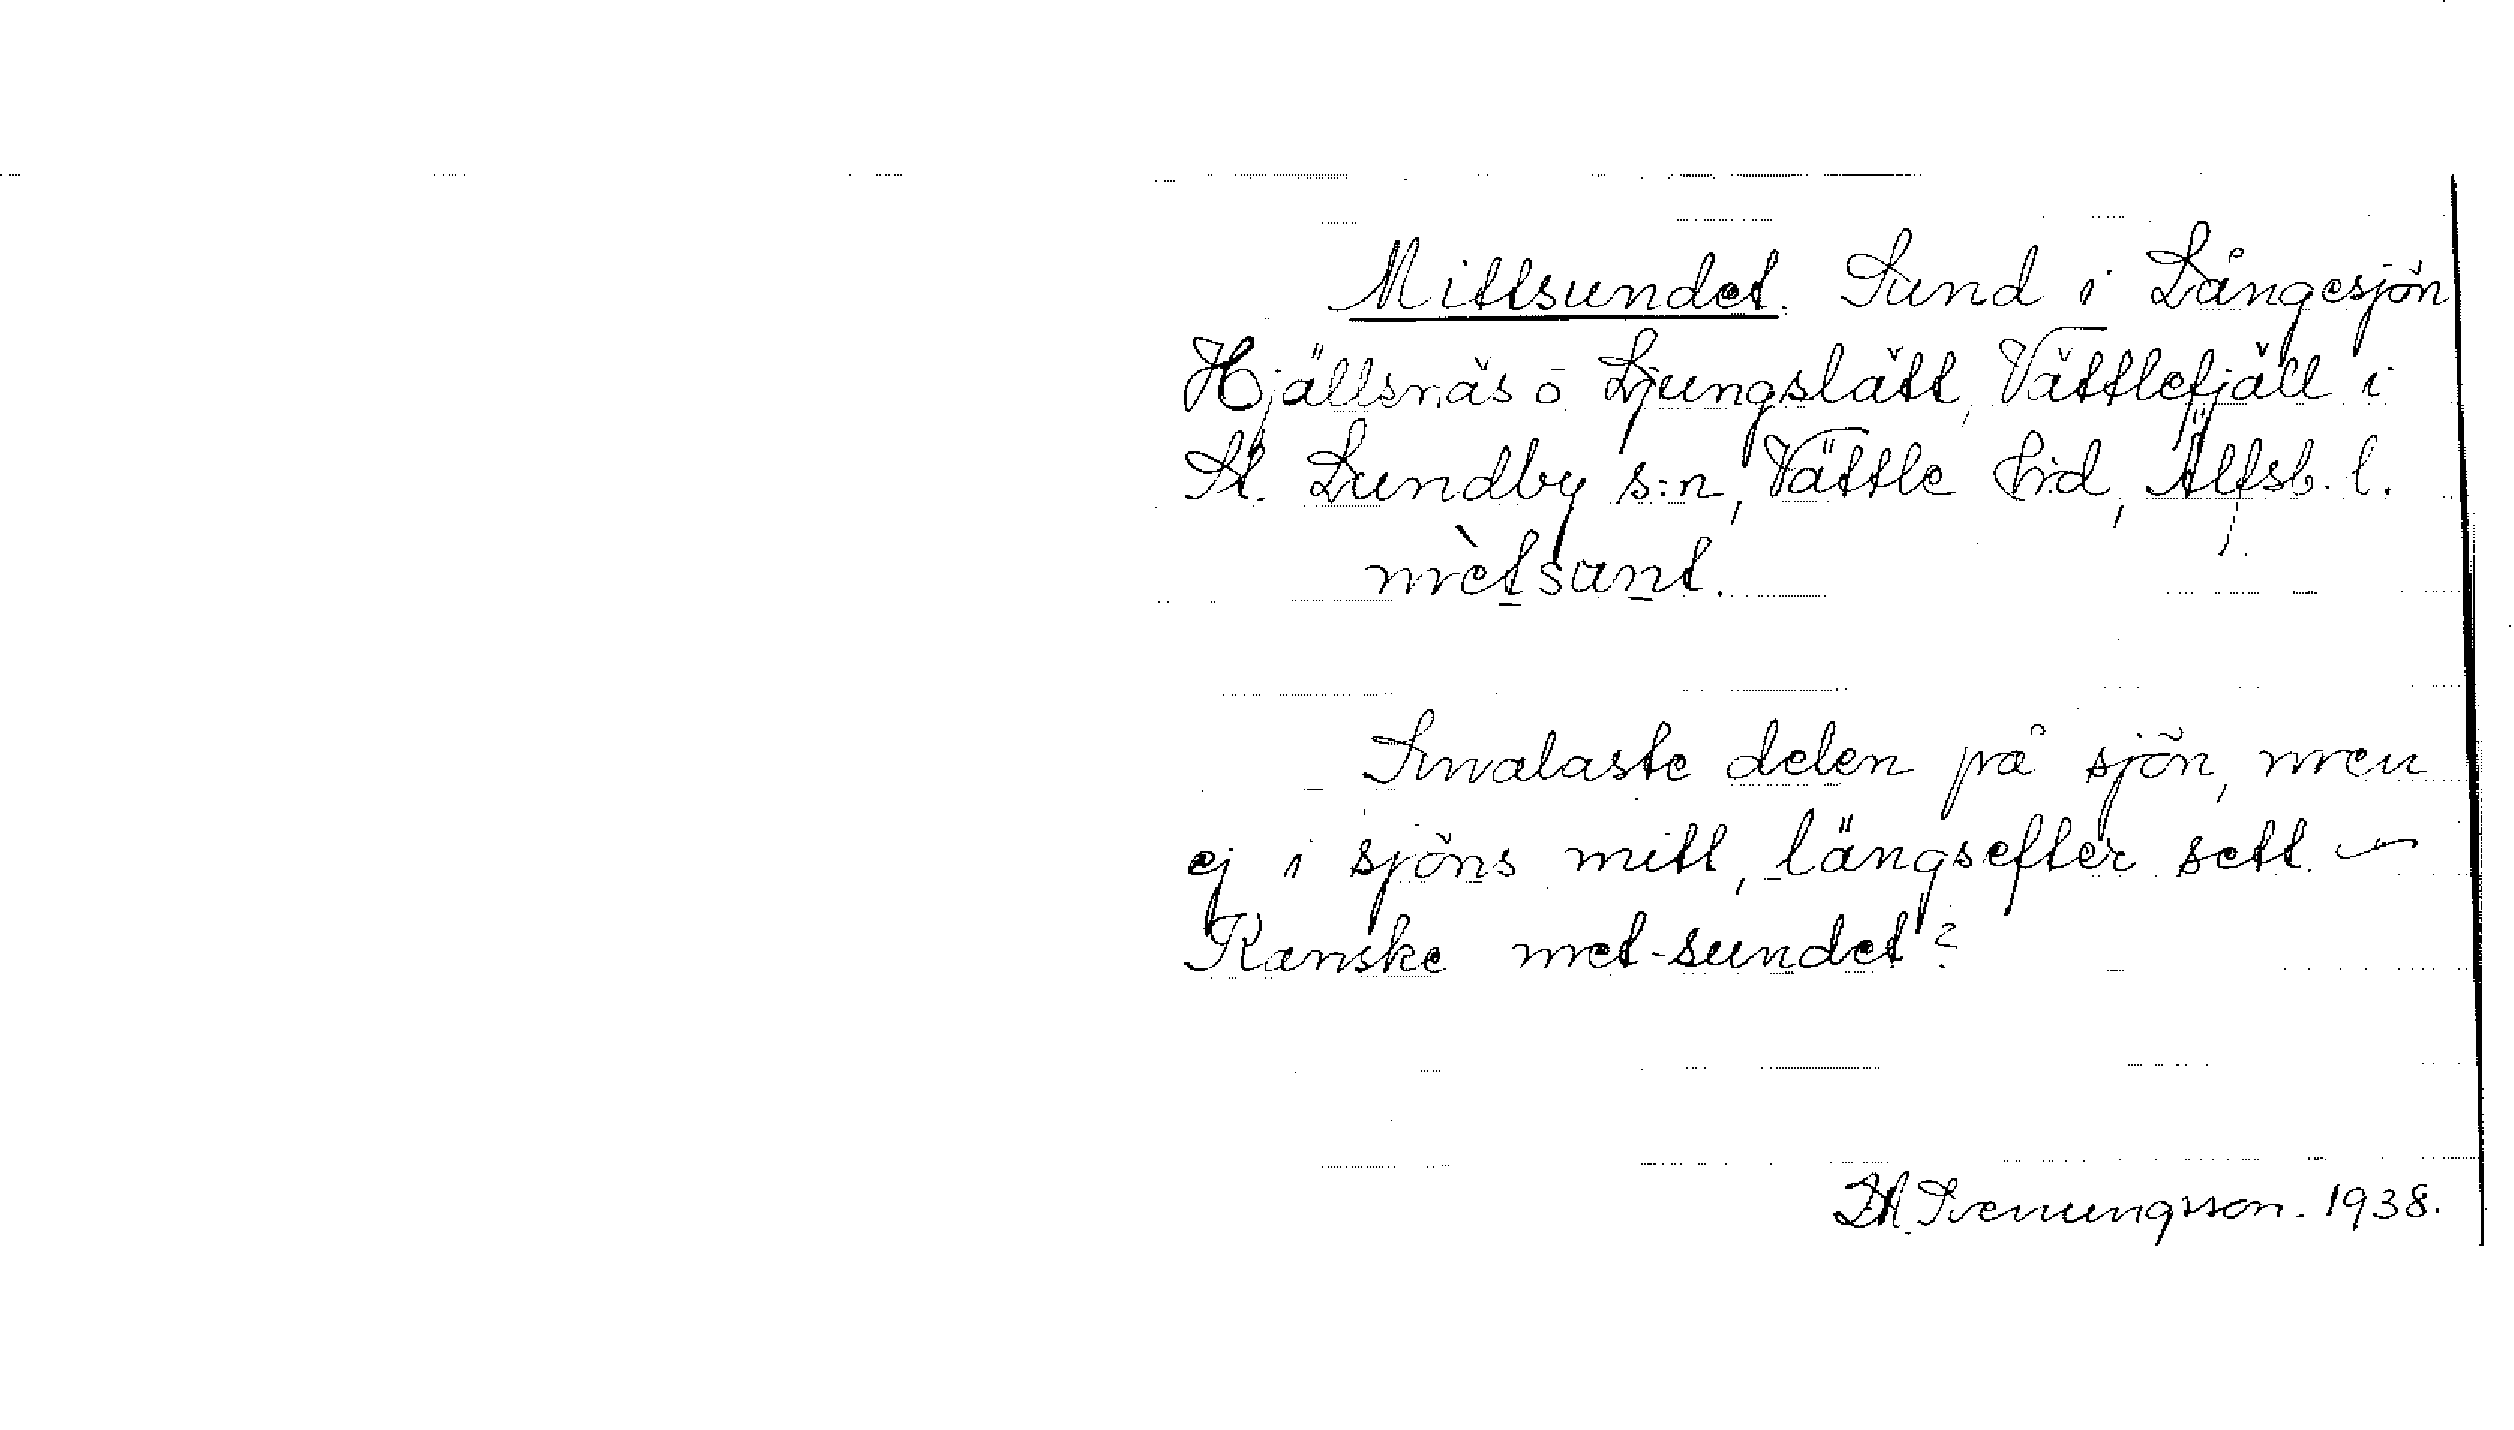 Mittsundet. Sund i Långesjön
Hjällsnäs o Ljungslätt, Vättlefjäll i
St. Lundby s:n, Vättle hrd, Älfsb. l.
mètsunt.
Smalaste delen på sjön, men
ej i sjöns mitt, längsefter sett. —
Kanske met-sundet?
Svenungsson. 1938.